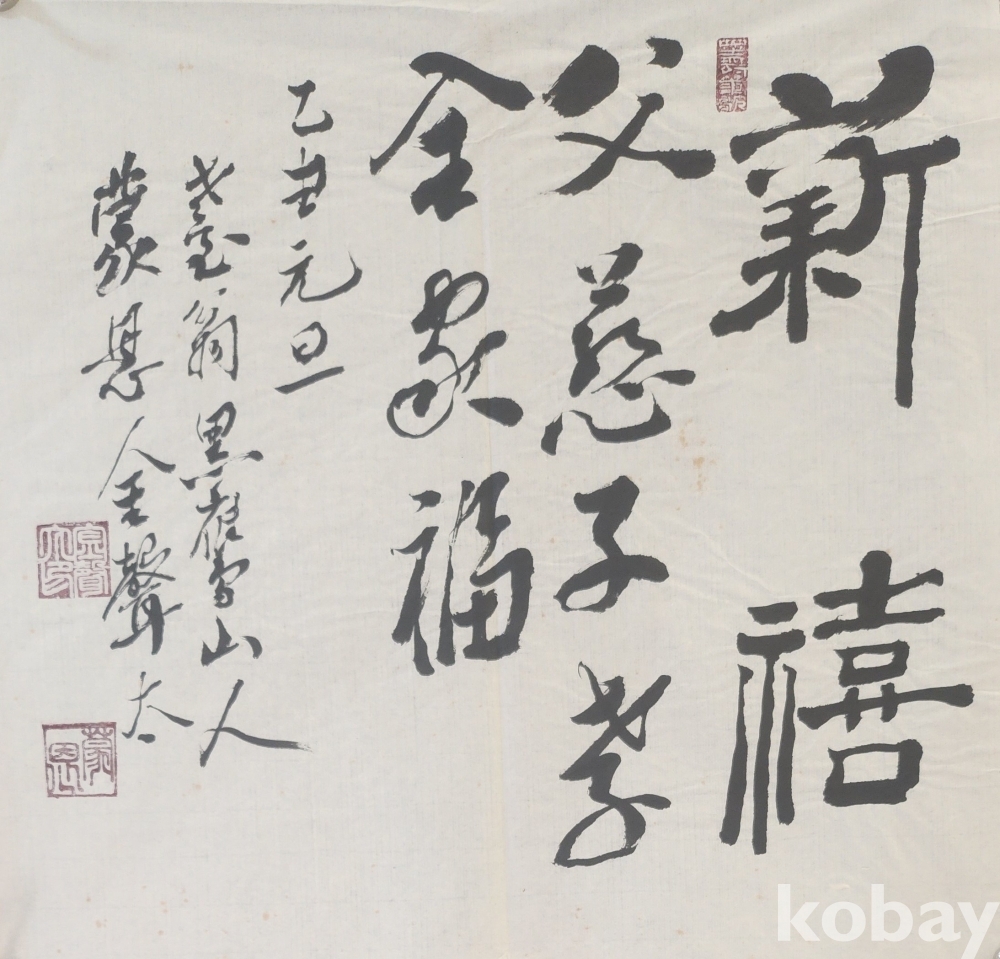 新禧
父慈子孝
全家福
乙丑元旦
老臺翁 黑雀雪山人
蒙恩 金聲 太
kobay